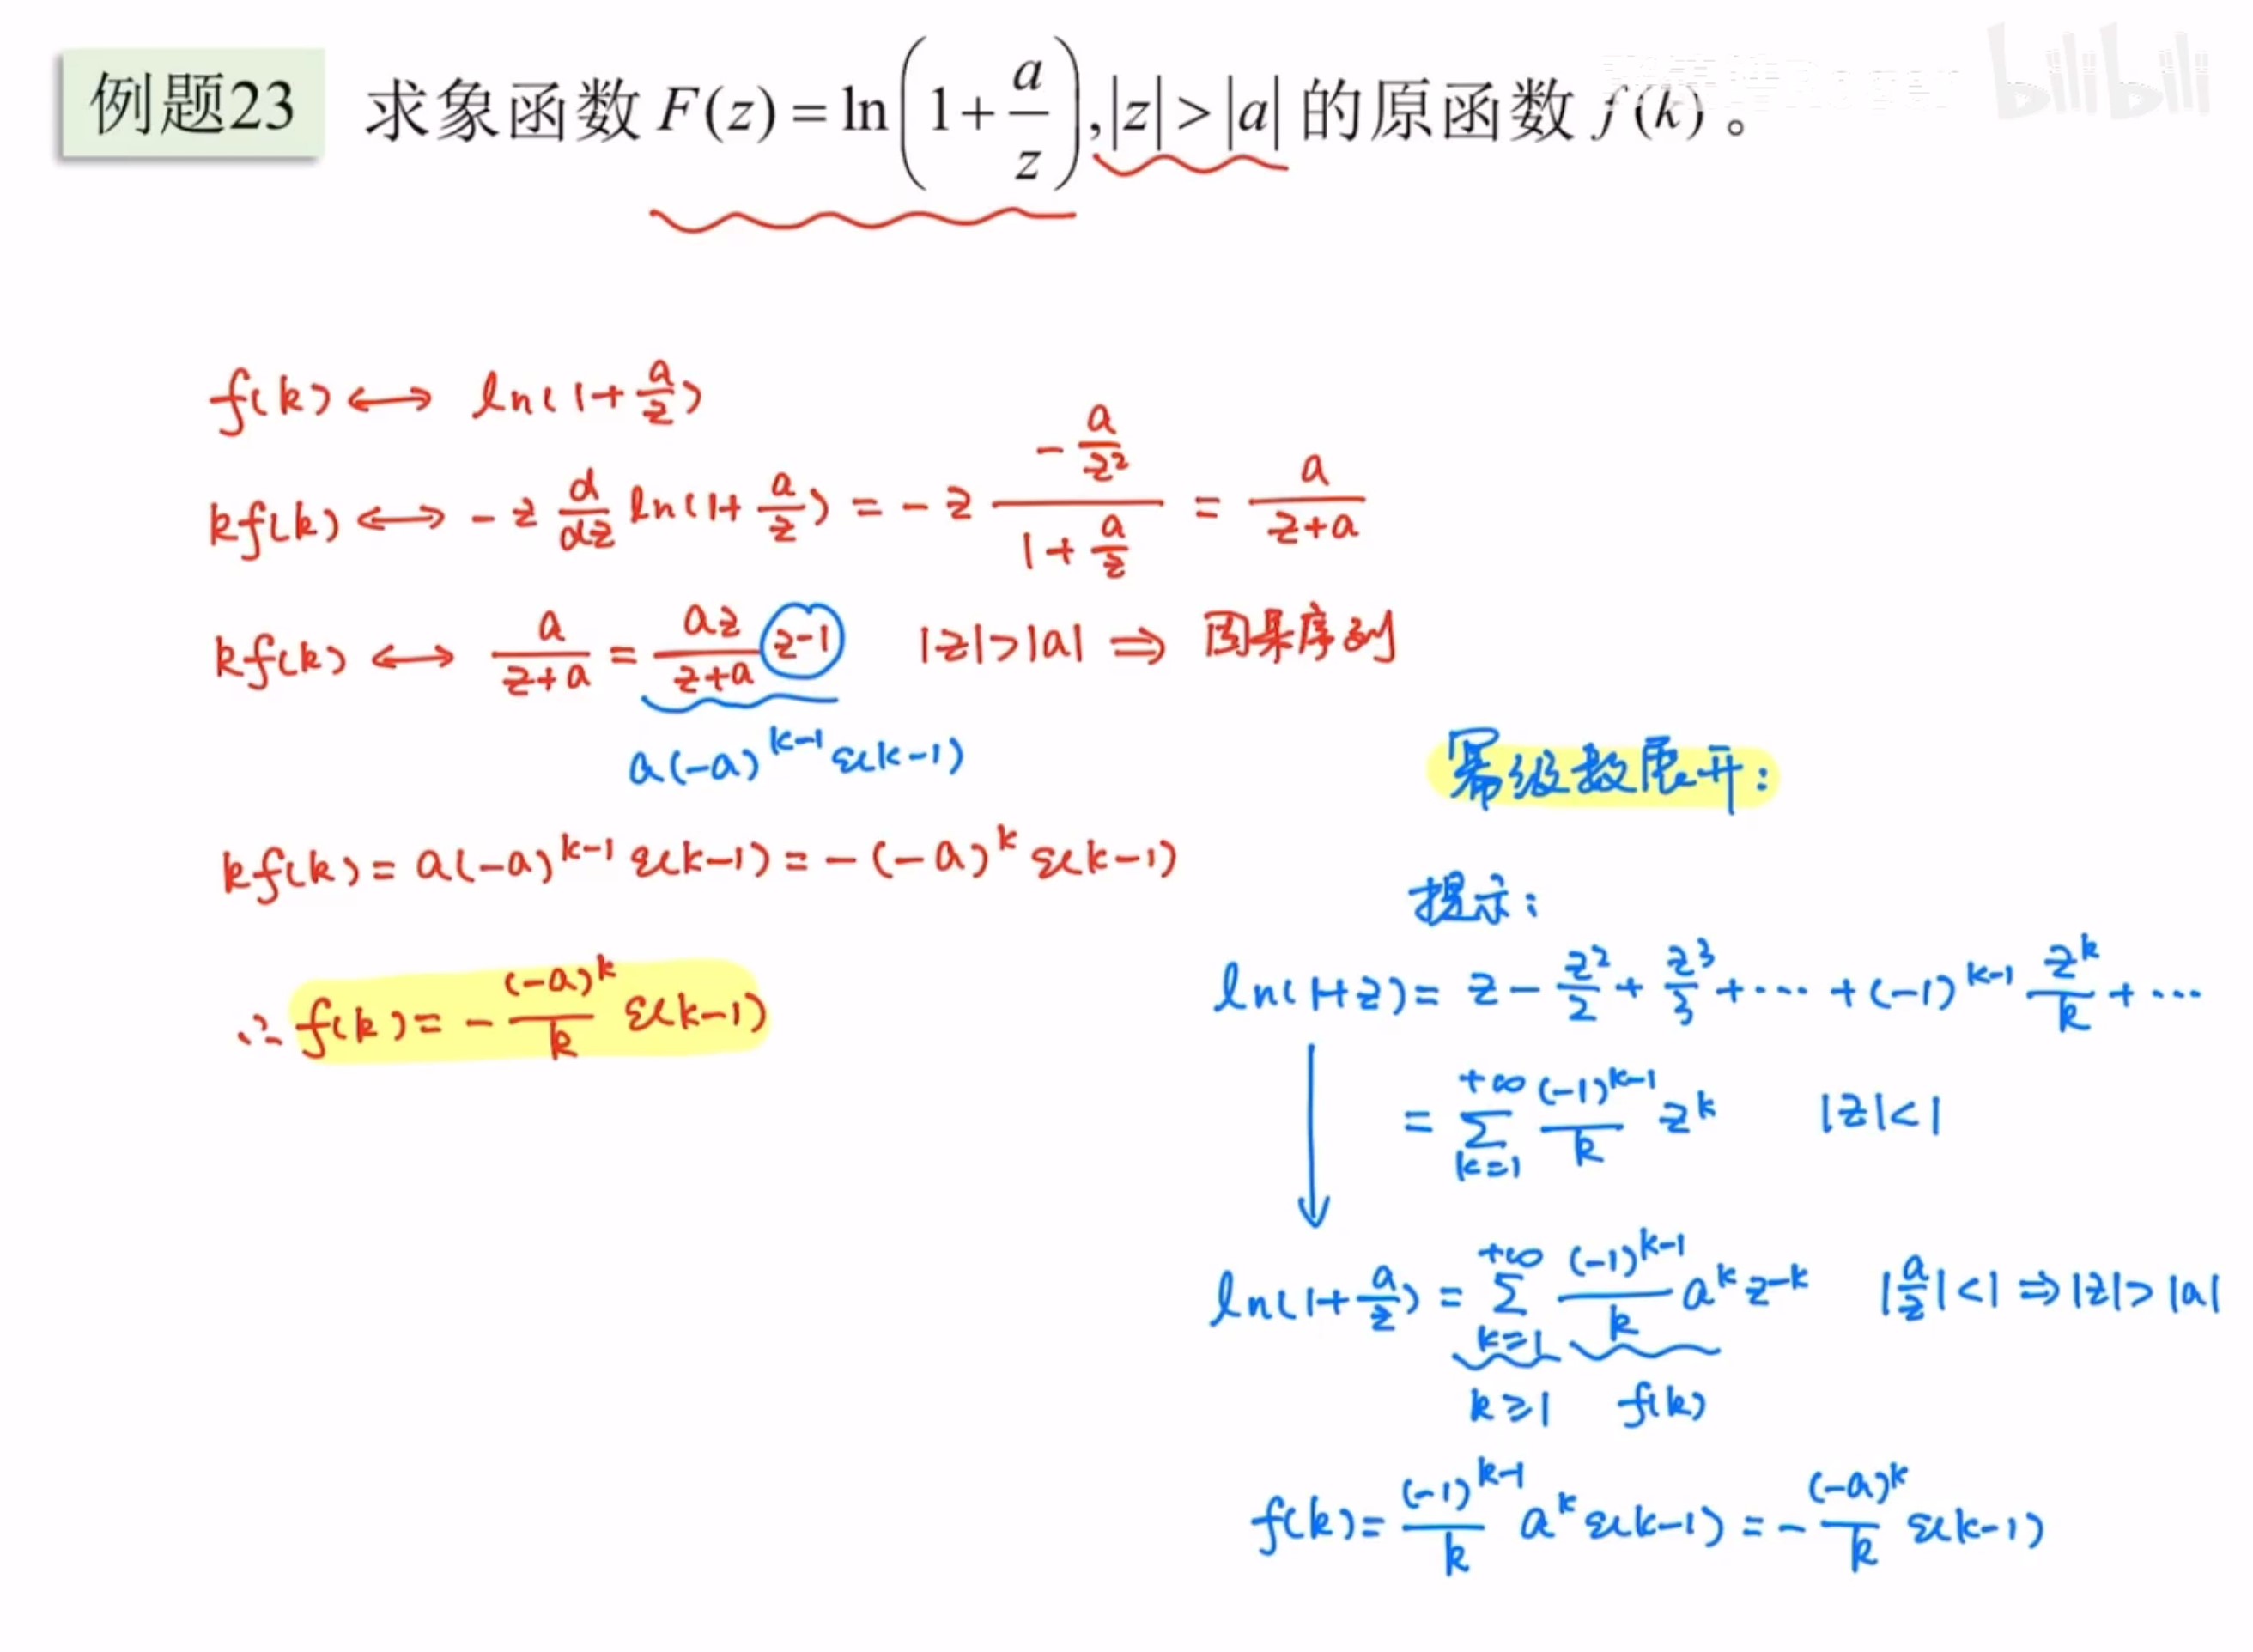 例题23 求象函数 F(z) = ln(1 + a/z), |z| > |a| 的原函数 f(k)。
bilibili
f(k) ⟷ ln(1 + a/z)
kf(k) ⟷ -z d/dz ln(1 + a/z) = -z (-a/z²)/(1 + a/z) = a/(z+a)
kf(k) ⟷ a/(z+a) = az/(z+a) z⁻¹ |z|>|a| ⇒ 因果序列
a(-a)^(k-1) ε(k-1)
kf(k) = a(-a)^(k-1) ε(k-1) = -(-a)^k ε(k-1)
∴ f(k) = - (-a)^k/k ε(k-1)
幂级数展开:
提示:
ln(1+z) = z - z²/2 + z³/3 + ··· + (-1)^(k-1) z^k/k + ···
= ∑_{k=1}^{+∞} (-1)^(k-1)/k z^k |z|<1
ln(1 + a/z) = ∑_{k=1}^{+∞} (-1)^(k-1)/k a^k z^-k |a/z|<1 ⇒ |z|>|a|
k≥1 f(k)
f(k) = (-1)^(k-1)/k a^k ε(k-1) = - (-a)^k/k ε(k-1)